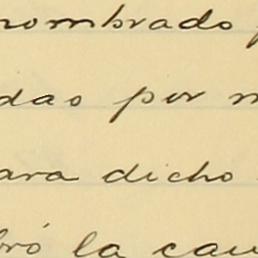 nombrado
dao por
ara dicho
bró la cau